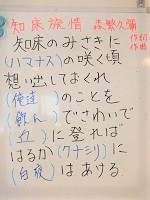 知床旅情 森繁久彌 作詞
作曲
知床のみさきに
(ハマナス)の咲く頃
想い出しておくれ
(俺達)のことを
(飲ん)でさわいで
(丘)に登れば
はるか(クナシリ)に
(白夜)はあける